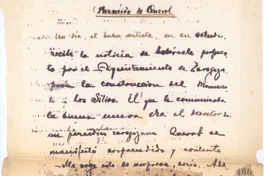 Recuerdo de Querol
Un día, el buen artista, en su estudio,
recibió la noticia de haberle propues-
to por el Ayuntamiento de Zaragoza
para la construcción del Monumen-
to a los Sitios. El que le comunicaba
la buena nueva era el director de
un periódico zaragozano. Querol se
manifestó sorprendido y contento
—Me coge esto de sorpresa, dijo.
160